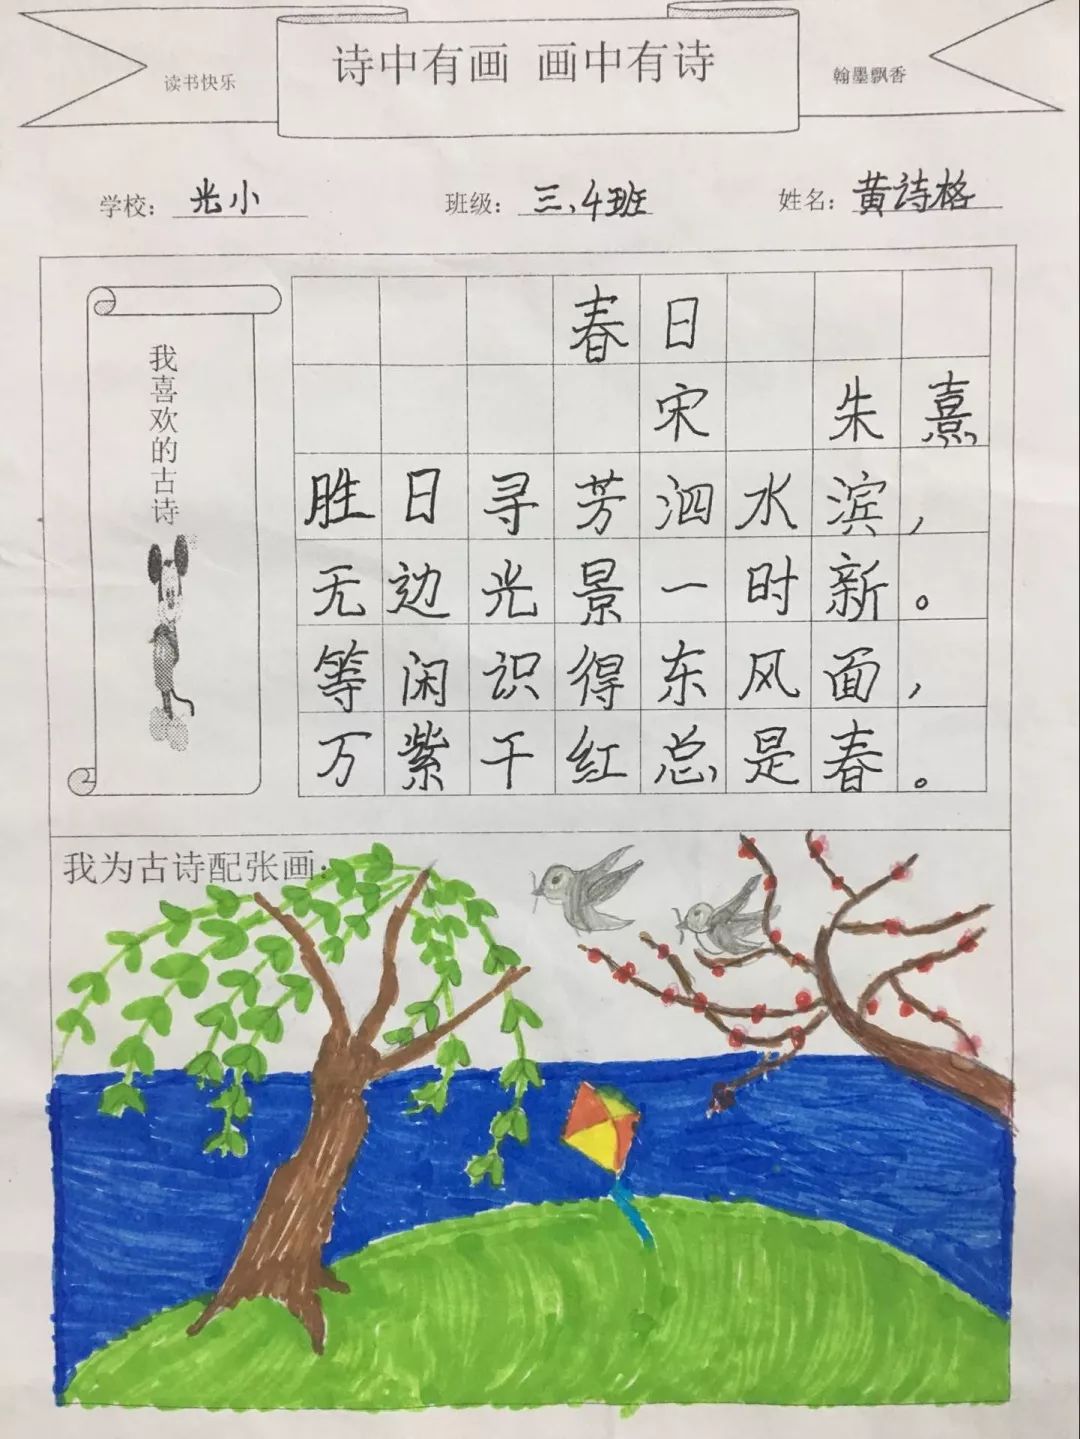 诗中有画 画中有诗
读书快乐
翰墨飘香
学校：光小 班级：三、4班 姓名：黄诗格
我喜欢的古诗
春日
宋 朱熹
胜日寻芳泗水滨，
无边光景一时新。
等闲识得东风面，
万紫千红总是春。
我为古诗配张画：